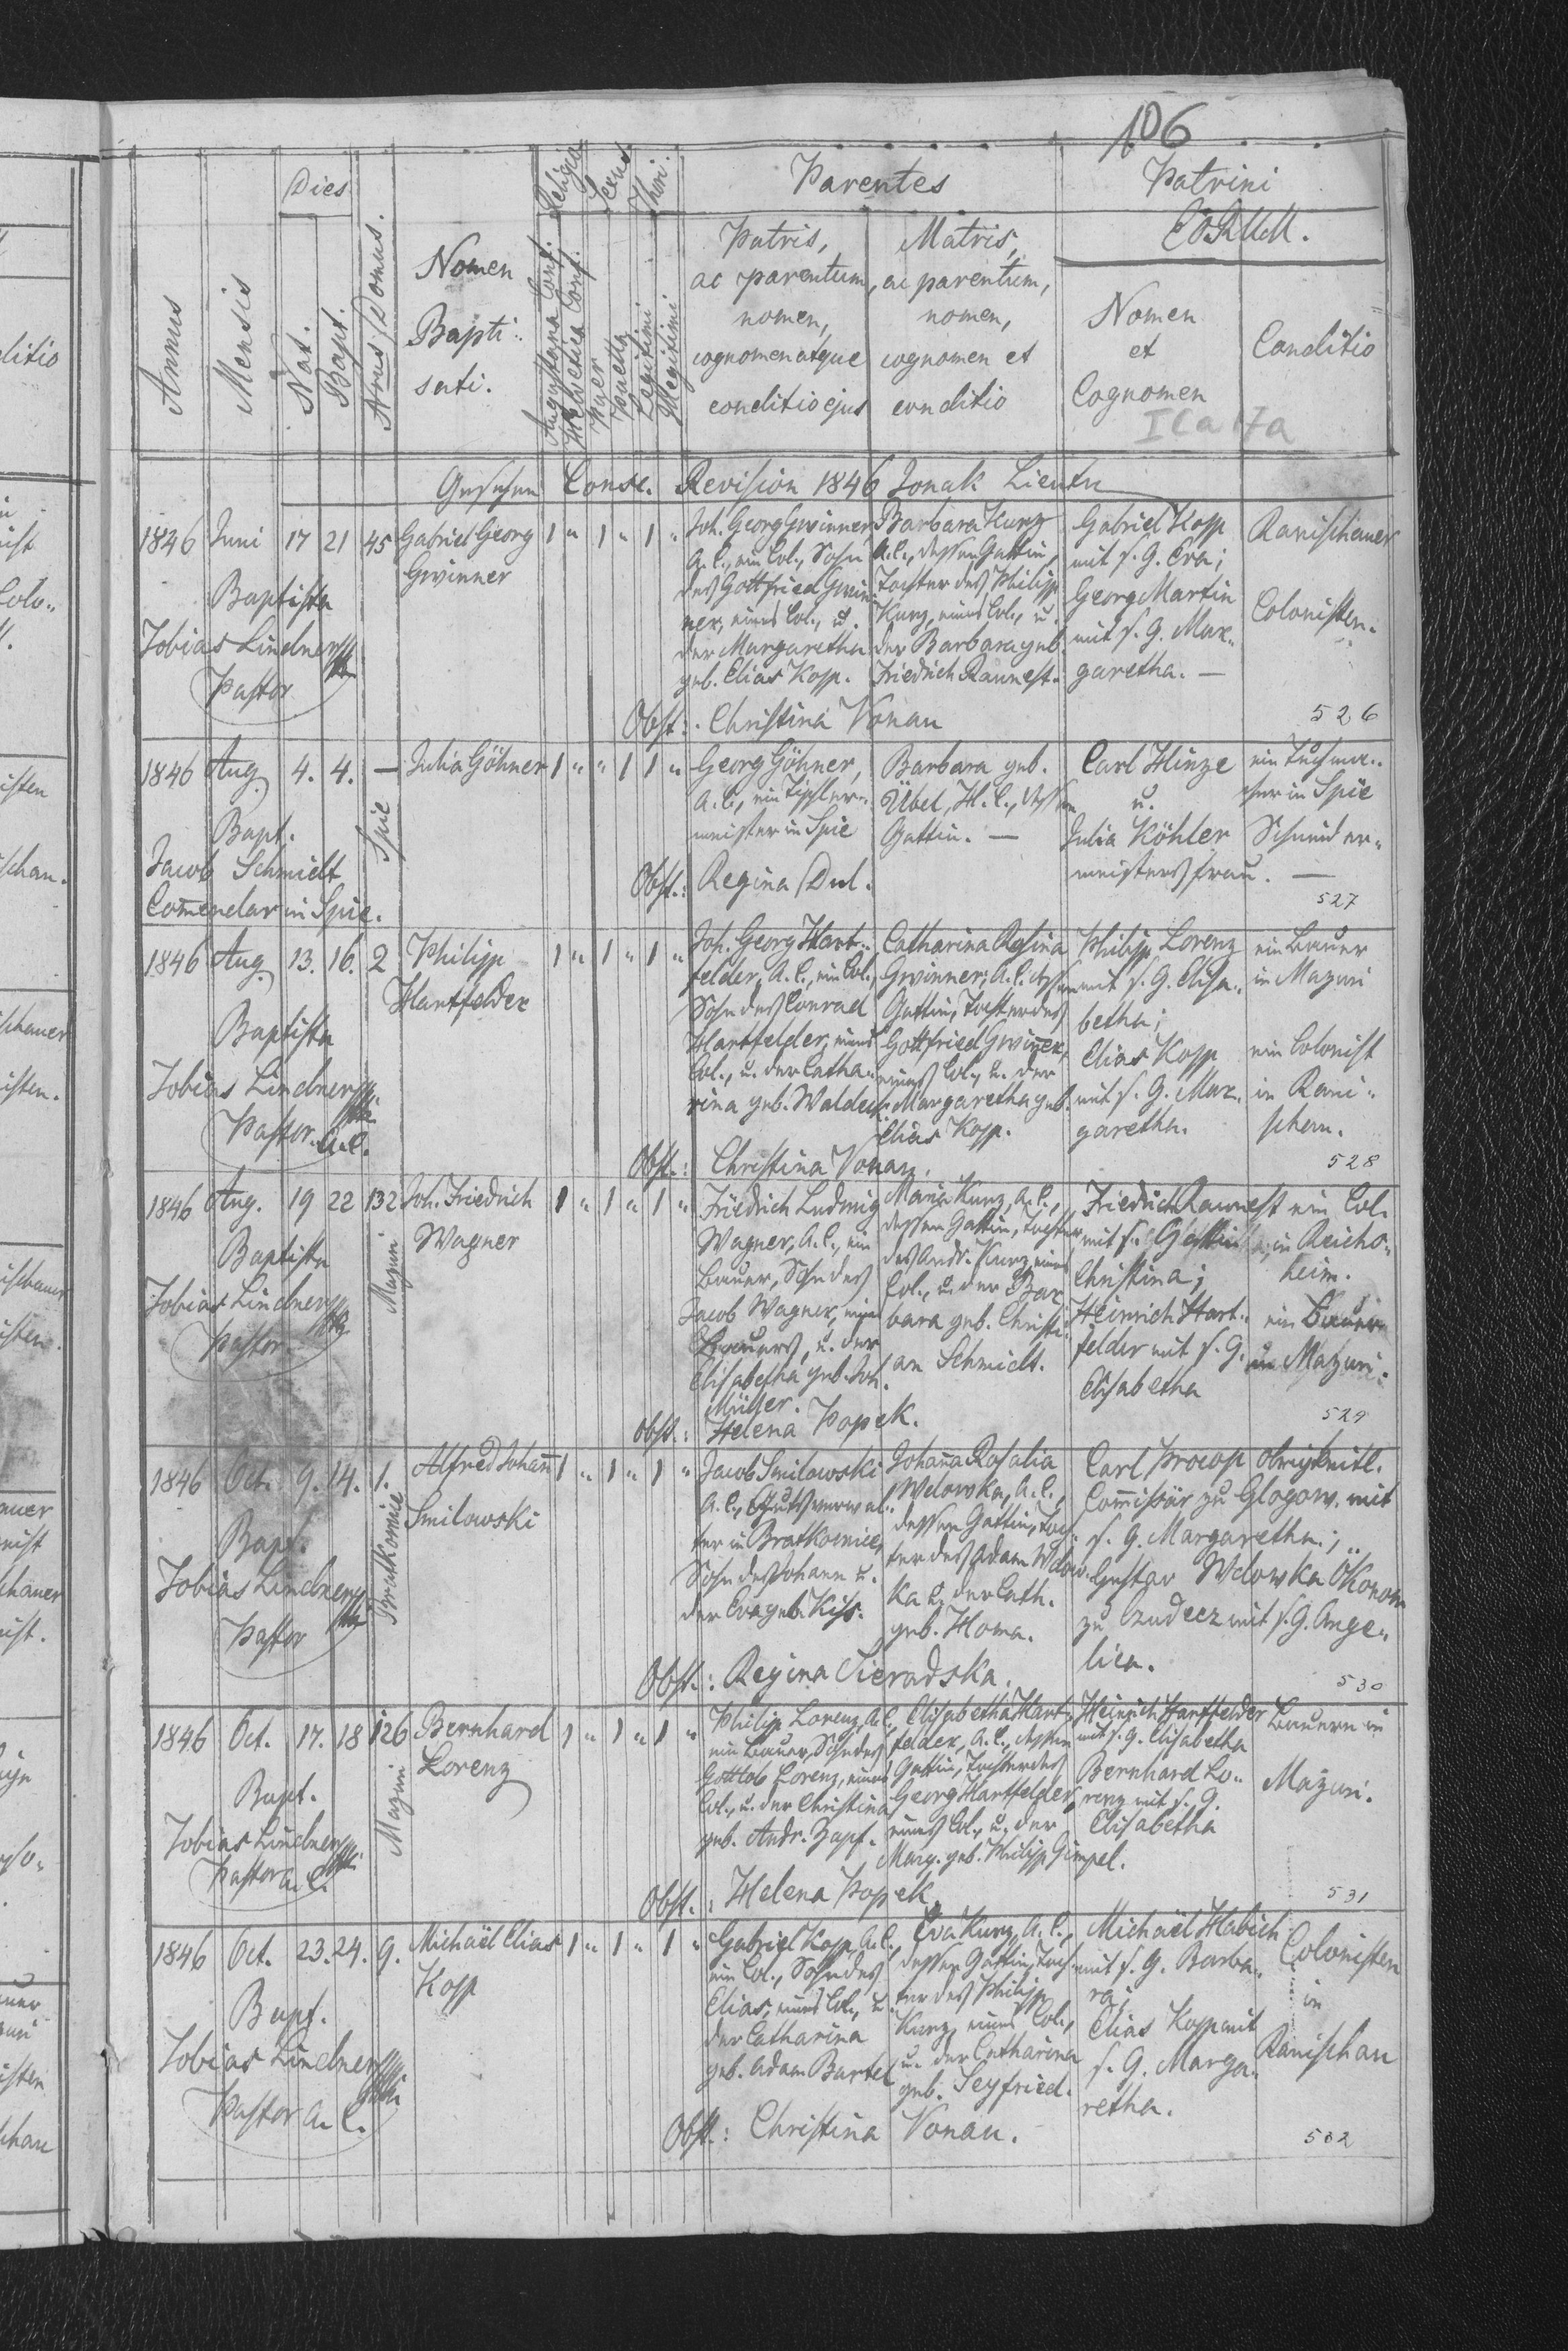 106
Dies
Religio
Sexus
Thori.
Parentes
Patrini
Annus
Mensis
Nat.
Bapt.
Nrus Domus.
Nomen
Bapti-
sati.
Augustana Conf.
Helvetica Conf.
Puer
Puella
Legitimi
Illegitimi
Patris,
ac parentum,
nomen,
cognomen atque
conditio ejus
Matris,
ac parentum,
nomen,
cognomen et
conditio
Nomen
et
Cognomen
Conditio
Gesehen Conse. Revision 1846
1846 Juni 17 21 45 Gabriel Georg 1 " 1 " 1 "
Gwinner
Baptista
Tobias Lindner
Pastor
Joh. Georg Gwinner
A. C., ein Col., Sohn
des Gottfried Gwin-
ner, eines Col., u.
der Margaretha
geb. Elias Kopp.
Barbara Kurz
A. C., dessen Gattin,
Tochter des Philipp
Kurz, eines Col., u.
der Barbara geb.
Friedrich Raunest.
Gabriel Kopp
mit s. G. Eva;
Georg Martin
mit s. G. Mar-
garetha. —
Ranischauer
Colonisten.
Obst.: Christina Vonau
526
1846 Aug. 4. 4. — Julia Göhner 1 " " 1 1 "
Spie
Bapt.
Jacob Schmidt
Comendar in Spie.
Georg Göhner,
A. C., ein Tischler-
meister in Spie
Barbara geb.
Übel, H. C., dessen
Gattin. —
Carl Hinze
u.
Julia Köhler
meisters frau. —
ein Tuchma-
cher in Spie
Schneider-
Obst.: Regina Dul.
527
1846 Aug. 13. 16. 2 Philipp 1 " 1 " 1 "
Hartfelder
Baptista
Tobias Lindner
Pastor A. C.
Joh. Georg Hart-
felder, A. C., ein Col.,
Sohn des Conrad
Hartfelder, eines
Col., u. der Catha-
rina geb. Walden
Catharina Regina
Gwinner, A. C. dessen
Gattin, Tochter des
Gottfried Gwiner,
eines Col., u. der
Margaretha geb.
Elias Kopp.
Philipp Lorenz
mit s. G. Elisa-
betha;
Elias Kopp
mit s. G. Mar-
garetha.
ein Bauer
in Mazuri
ein Colonist
in Rani-
schau.
Obst.: Christina Vonau.
528
1846 Aug. 19 22 132 Joh. Friedrich 1 " 1 " 1 "
Wagner
Mazuri
Baptista
Tobias Lindner
Pastor
Friedrich Ludwig
Wagner, A. C., ein
Bauer, Sohn des
Jacob Wagner, eines
Bauers, u. der
Elisabetha geb. Joh.
Müller.
Maria Kurz, A. C.,
dessen Gattin, Tochter
des Andr. Kurz, eines
Col., u. der Bar
bara geb. Christi-
an Schmidt.
Friedrich Raunest
mit s. Gattin
Christina;
Heinrich Hart-
felder mit s. G.
Elisabetha
ein Col.
in Reichs-
heim.
ein Bauer
in Mazuri.
Obst.: Helena Popek.
529
1846 Oct. 9. 14. 1. Alfred Johañ 1 " 1 " 1 "
Smilowski
Bratkowice
Bapt.
Tobias Lindner
Pastor
Jacob Smilowski
A. C., Gutsverwal-
ter in Bratkowice,
Sohn des Johann u.
der Eva geb. Kiss.
Johaña Rosalia
Wdowka, A. C.,
dessen Gattin, Toch-
ter des Adam Wdow-
ka u. der Cath.
geb. Homa.
Carl Procop obrigkeitl.
Comissär zu Glogow. mit
s. G. Margaretha;
Gustav Wdowka Ökonom
zu Czudecz mit s. G. Ange-
lica.
Obst.: Regina Sieradska.
530
1846 Oct. 17. 18 126 Bernhard 1 " 1 " 1 "
Lorenz
Mazuri
Bapt.
Tobias Lindner
Pastor A. C.
Philipp Lorenz, A. C.,
ein Bauer, Sohn des
Gottlob Lorenz, eines
Col., u. der Christina
geb. Andr. Zapf.
Elisabetha Hart-
felder, A. C., dessen
Gattin, Tochter des
Georg Hartfelder,
eines Col., u. der
Marg. geb. Philipp Gimpel.
Heinrich Hartfelder
mit s. G. Elisabetha
Bernhard Lo-
renz mit s. G.
Elisabetha
Bauern in
Mazuri.
Obst.: Helena Popek
531
1846 Oct. 23. 24. 9. Michael Elias 1 " 1 " 1 "
Kopp
Bapt.
Tobias Lindner
Pastor A. C.
Gabriel Kopp, A. C.
ein Col., Sohn des
Elias, eines Col., u.
der Catharina
geb. Adam Bartel
Eva Kurz, A. C.,
dessen Gattin, Toch-
ter des Philipp
Kurz, eines Col.,
u. der Catharina
geb. Seyfried.
Michael Habich
mit s. G. Barba-
ra;
Elias Kopp mit
s. G. Marga-
retha.
Colonisten
in
Ranischau
Obst.: Christina Vonau.
532